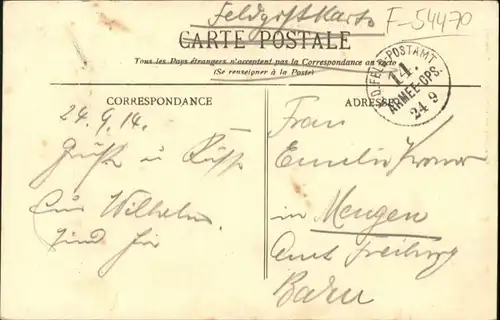 Feldpostkarte
F-54470
CARTE POSTALE
Tous les Pays étrangers n'acceptent pas la Correspondance au recto
(Se renseigner à la Poste)
K.D. FELD-POSTAMT
14.
ARMEE-CPS.
24 9
CORRESPONDANCE
24.9.14.
Grüße u Küsse
Eur Wilhelm.
sind hir
ADRESSE
Frau
Emilie
in Mengen
Amt Freiburg
Baden